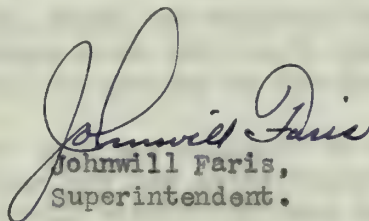 Johnwill Faris
Johnwill Faris,
Superintendent.